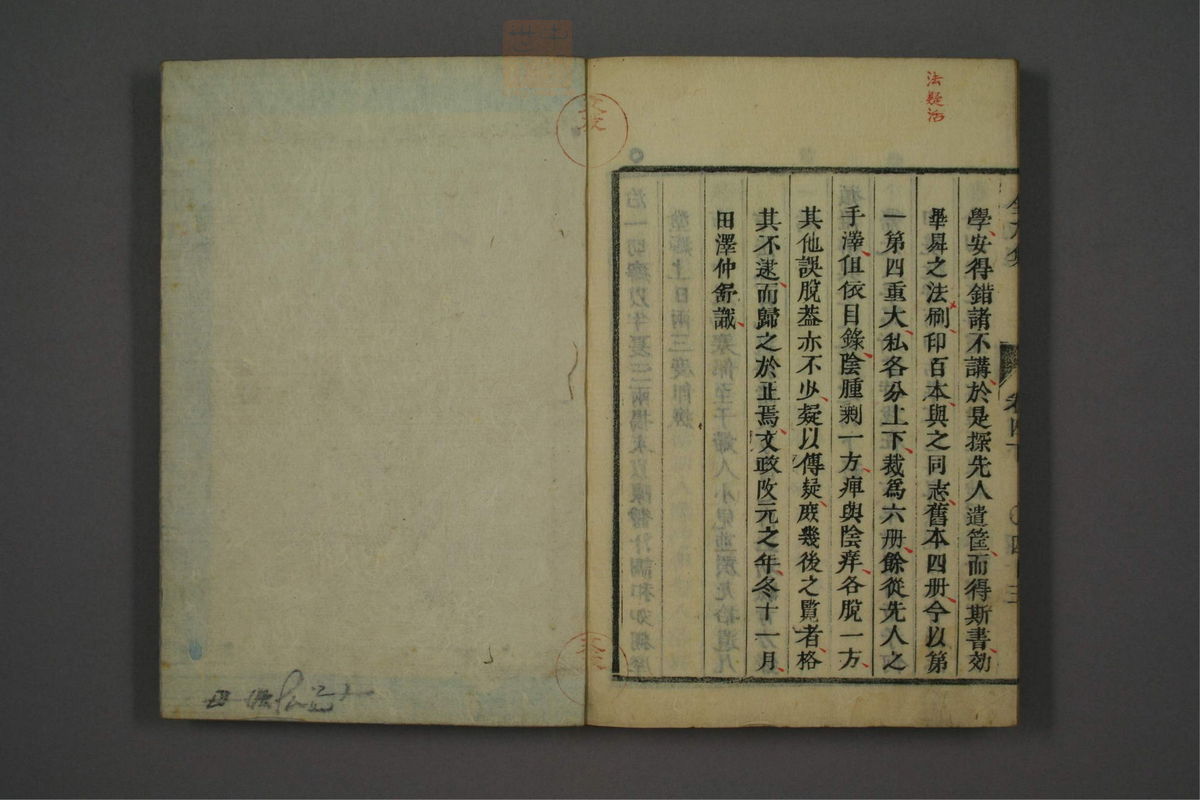 法疑活
學安得錯諸不講於是探先人遺筐而得斯書効
畢曻之法刷印百本與之同志舊本四册今以第
一第四重大私各分上下裁爲六册餘從先人之
手澤但依目錄陰腫剩一方痺與陰痒各脫一方
其他誤脫葢亦不少疑以傳疑庶幾後之覧者格
其不逮而歸之於正焉文政改元之年冬十一月
田澤仲舒識